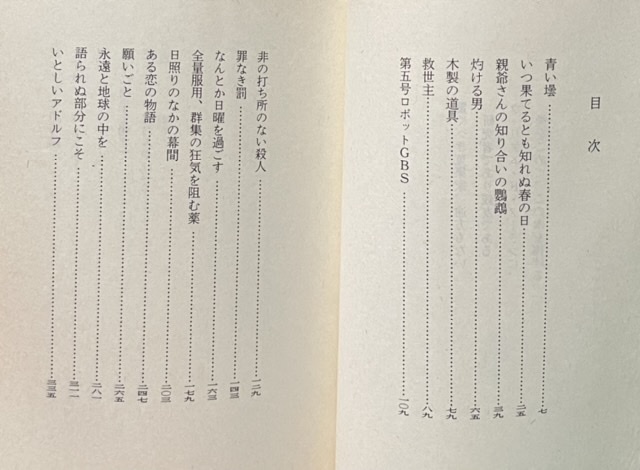 目次
青い壜……七
いつ果てるとも知れぬ春の日……二五
親爺さんの知り合いの鸚鵡……三九
灼ける男……六五
木製の道具……七九
救世主……八九
第五号ロボットGBS……一〇九
非の打ち所のない殺人……一二九
罪なき罰……一四三
なんとか日曜を過ごす……一六三
全量服用、群集の狂気を阻む薬……一七九
日照りのなかの幕間……二〇三
ある恋の物語……二四七
願いごと……二六五
永遠と地球の中を……二八一
語られぬ部分にこそ……三一一
いとしいアドルフ……三三五